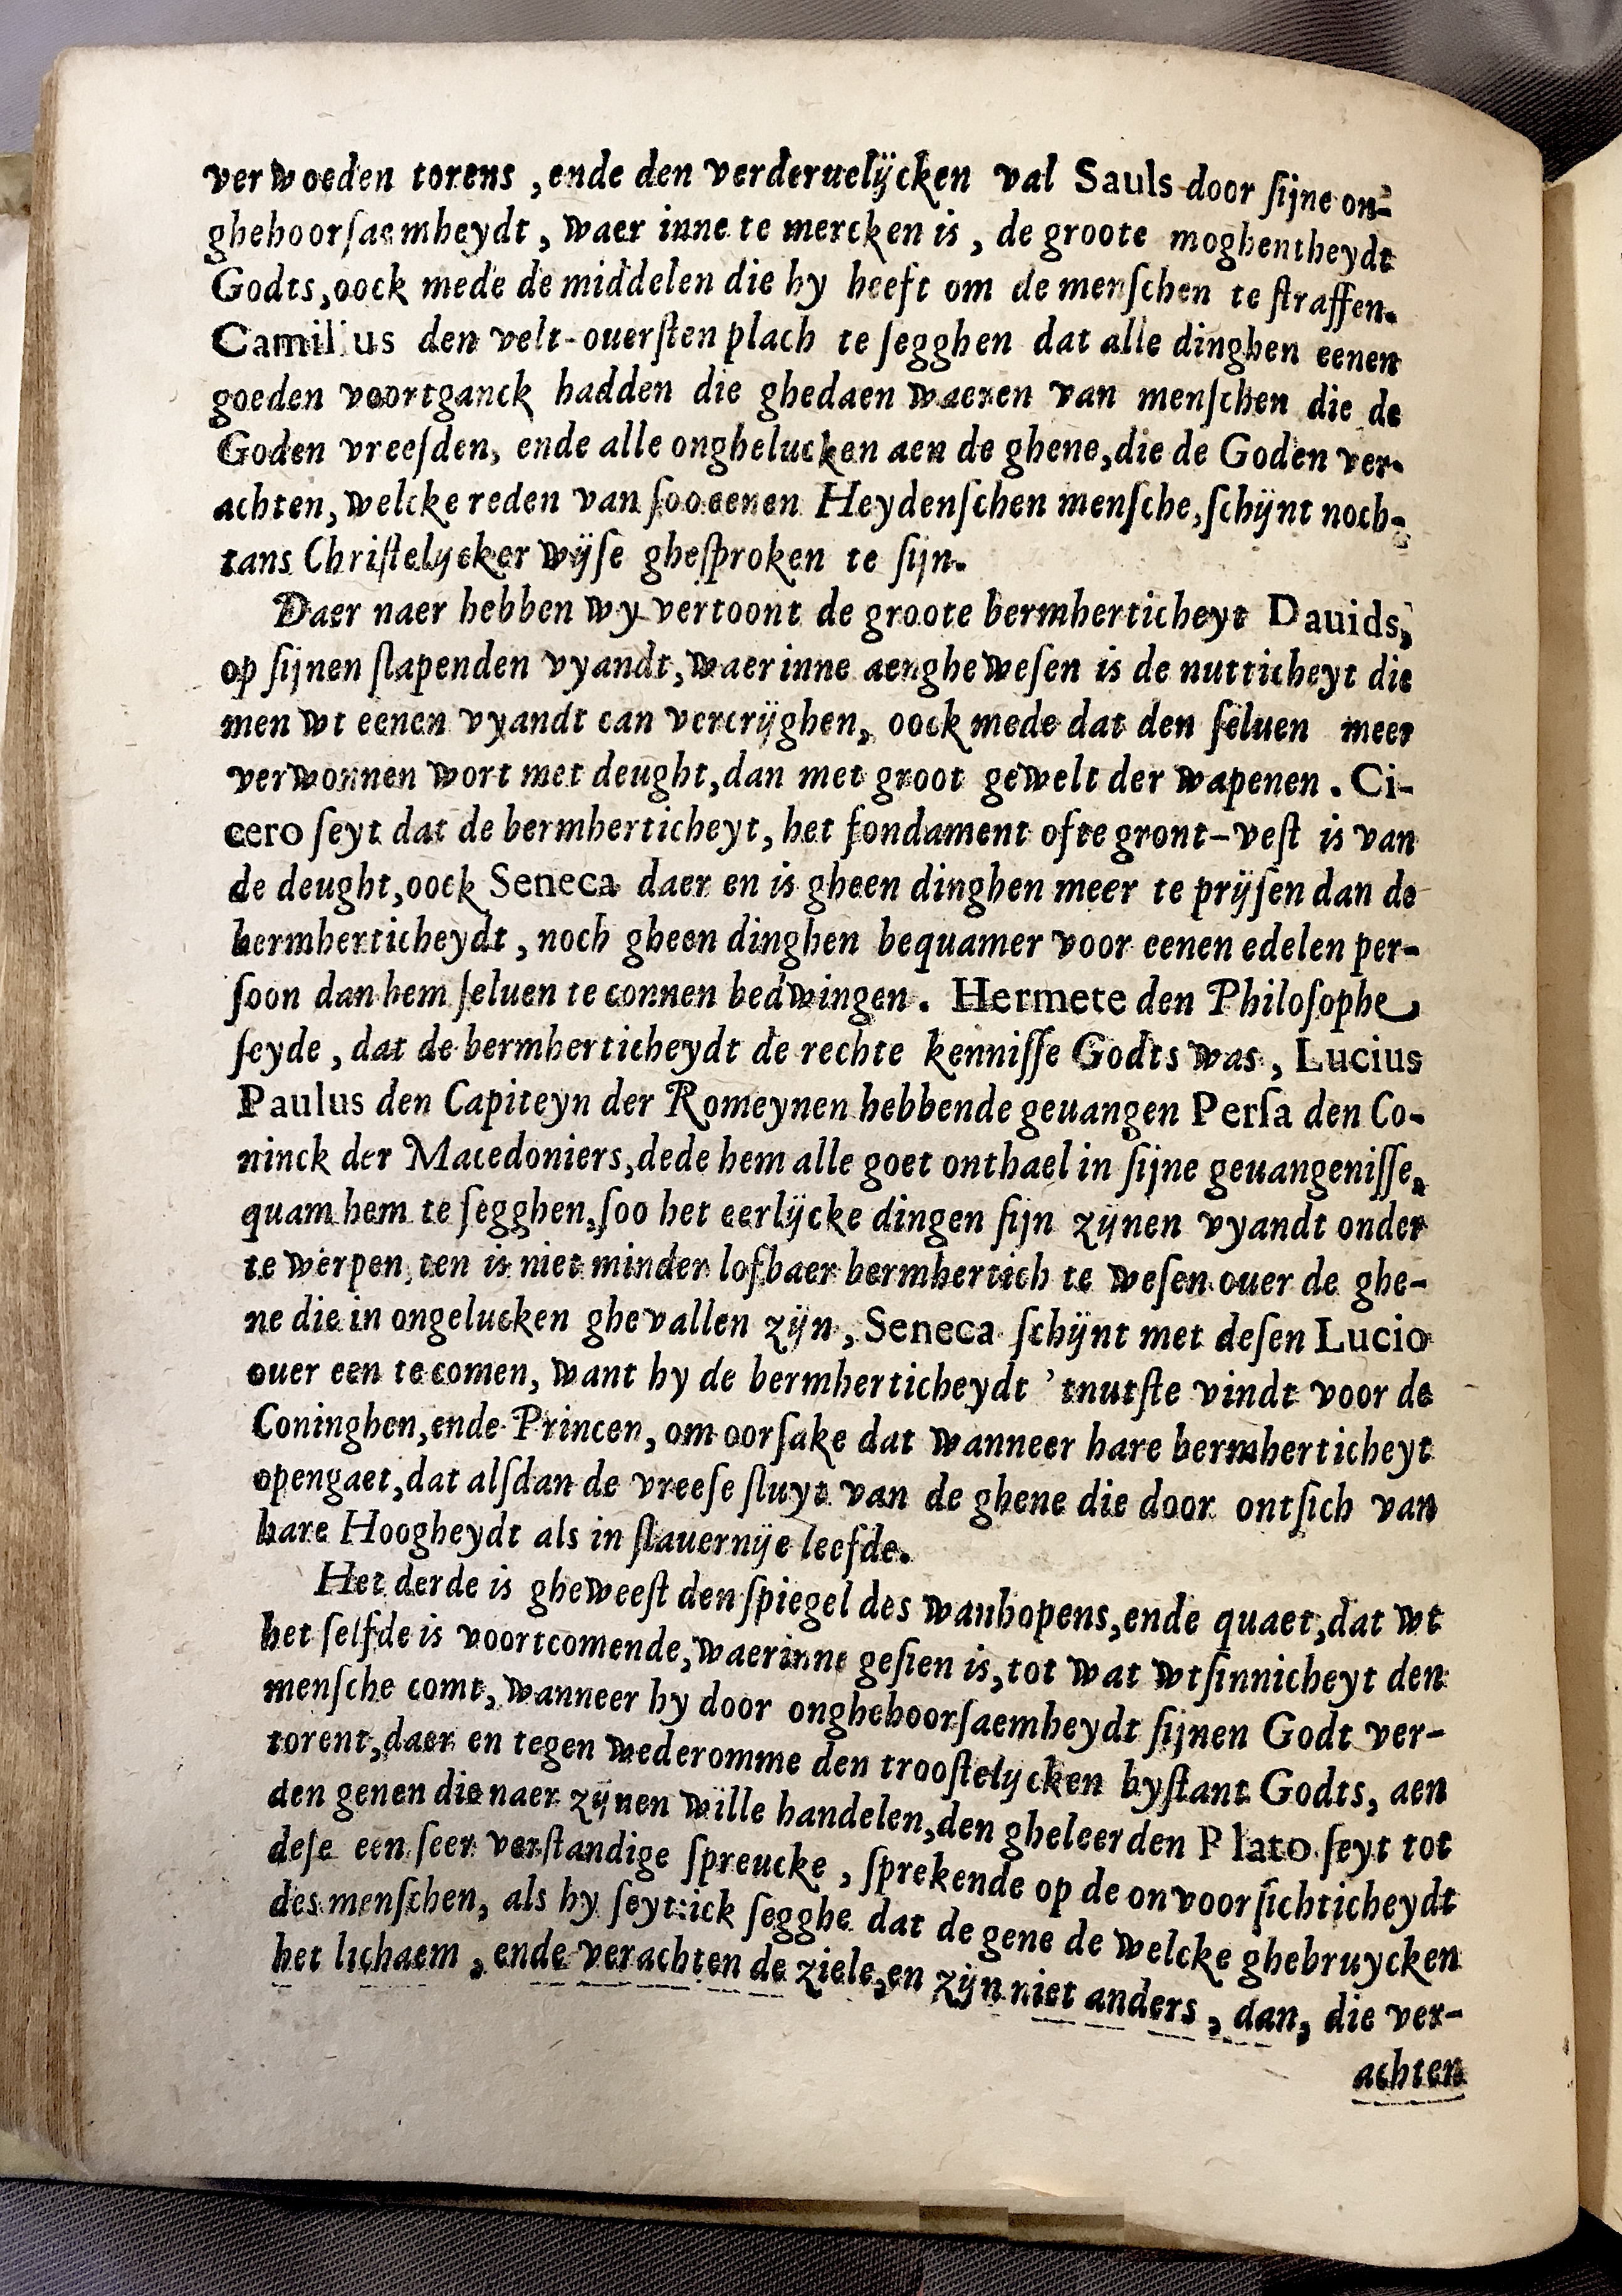 verwoeden torens, ende den verderuelijcken val Sauls door sijne on-
ghehoorsaemheydt, waer inne te mercken is, de groote moghentheydt
Godts, oock mede de middelen die hy heeft om de menschen te straffen.
Camillus den velt-ouersten plach te segghen dat alle dinghen eenen
goeden voortganck hadden die ghedaen waeren van menschen die de
Goden vreesden, ende alle onghelucken aen de ghene, die de Goden ver-
achten, welcke reden van soo eenen Heydenschen mensche, schijnt noch-
tans Christelycker wijse ghesproken te sijn.
Daer naer hebben wy vertoont de groote bermherticheyt Dauids,
op sijnen slapenden vyandt, waer inne aenghewesen is de nutticheyt die
men wt eenen vyandt can vercrijghen, oock mede dat den seluen meer
verwonnen wort met deught, dan met groot gewelt der wapenen. Ci-
cero seyt dat de bermherticheyt, het fondament ofte gront-vest is van
de deught, oock Seneca daer en is gheen dinghen meer te prijsen dan de
bermherticheydt, noch gheen dinghen bequamer voor eenen edelen per-
soon dan hem seluen te connen bedwingen. Hermete den Philosophe
seyde, dat de bermherticheydt de rechte kennisse Godts was, Lucius
Paulus den Capiteyn der Romeynen hebbende geuangen Persa den Co-
ninck der Macedoniers, dede hem alle goet onthael in sijne geuangenisse,
quam hem te segghen, soo het eerlijcke dingen sijn zijnen vyandt onder
te werpen, ten is niet minder lofbaer bermhertich te wesen ouer de ghe-
ne die in ongelucken ghevallen zijn, Seneca schijnt met desen Lucio
ouer een te comen, want hy de bermherticheydt 'tnutste vindt voor de
Coninghen, ende Princen, om oorsake dat wanneer hare bermherticheyt
opengaet, dat alsdan de vreese sluyt van de ghene die door ontsich van
hare Hoogheydt als in slauernije leefde.
Het derde is gheweest den spiegel des wanhopens, ende quaet, dat wt
het selfde is voortcomende, waerinne gesien is, tot wat wtsinnicheyt den
mensche comt, wanneer hy door onghehoorsaemheydt sijnen Godt ver-
torent, daer en tegen wederomme den troostelijcken bystant Godts, aen
den genen die naer zijnen wille handelen, den gheleerden Plato seyt tot
dese een seer verstandige spreucke, sprekende op de onvoorsichticheydt
des menschen, als hy seyt: ick segghe dat de gene de welcke ghebruycken
het lichaem, ende verachten de ziele, en zijn niet anders, dan, die ver-
achten